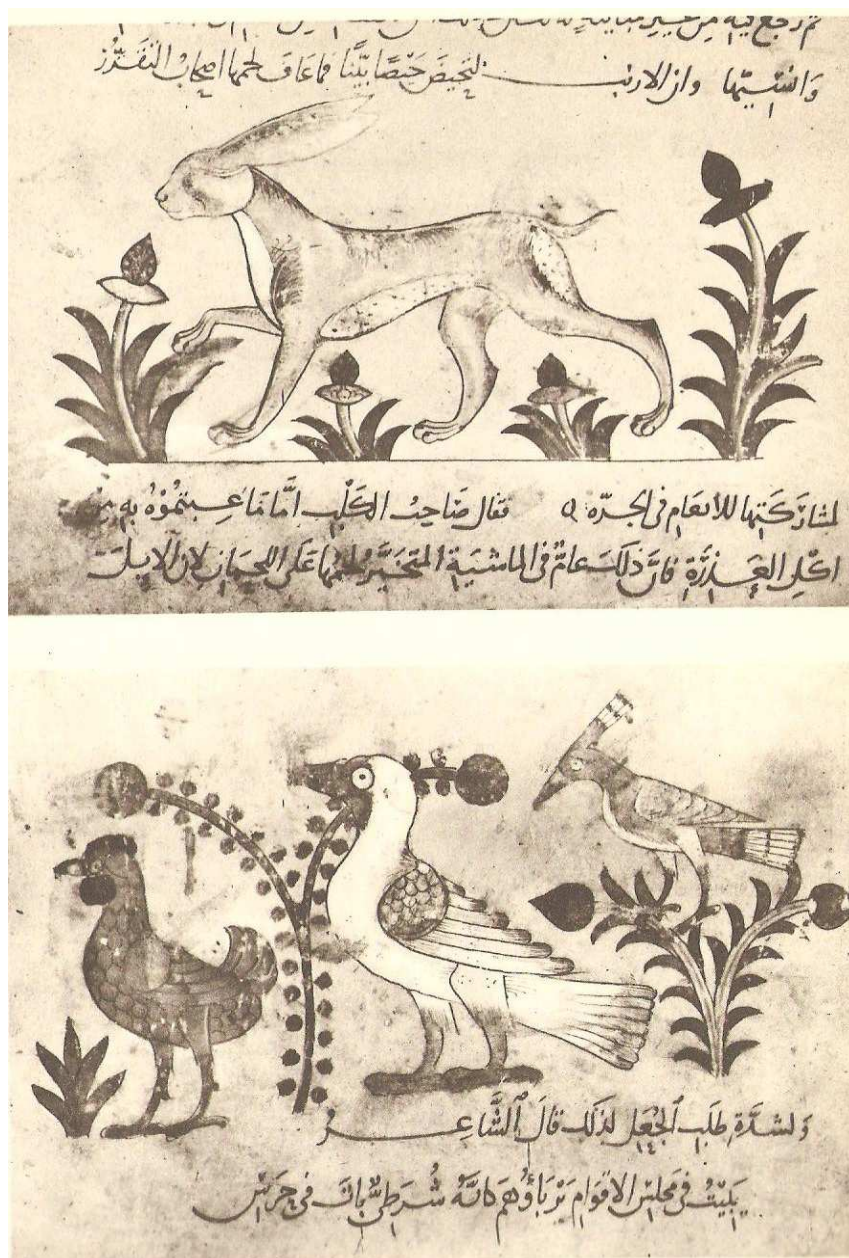 ثم رجع فيه من
وَاشتيتها وان الارنب لتحيضَ حَيْضًا بيّنًا فما عَافَ لحمها اصحابُ التقَزّز
لمشارَكَتِها للأنعَام في الجرّه فقال صَاحبُ الكَلْب امَّا مَا عِبتمُوْهُ بِهِ مِن
اكْلِ العَذِرَةِ فانّ ذلكَ عامٌ في الماشيَةِ المتَخَيَّرِ لحمُها عَلى اللحمان لان الابل
وَلشدَّةِ طلَبِ الجُعَلِ لذلك قالَ الشَّاعِرُ
يَبِيْتُ في مَجلِسِ الاقوَامِ يَرْبَاؤُهُم كانَّهُ شُرَطِيٌّ بَاتَ في حَرَسِ